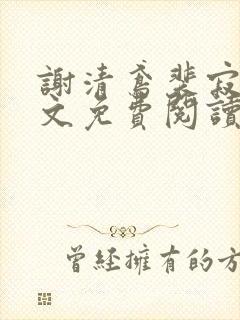 謝清鳶裴寂
文免費閱讀
曾經擁有的方